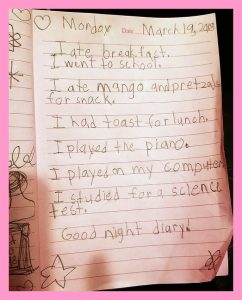 Monday Date March 19, 2018
I ate breakfast.
I went to school.
I ate mango and pretzals
for snack.
I had toast for lunch.
I played the piano.
I played on my computer
I studied for a science
test.
Good night diary!